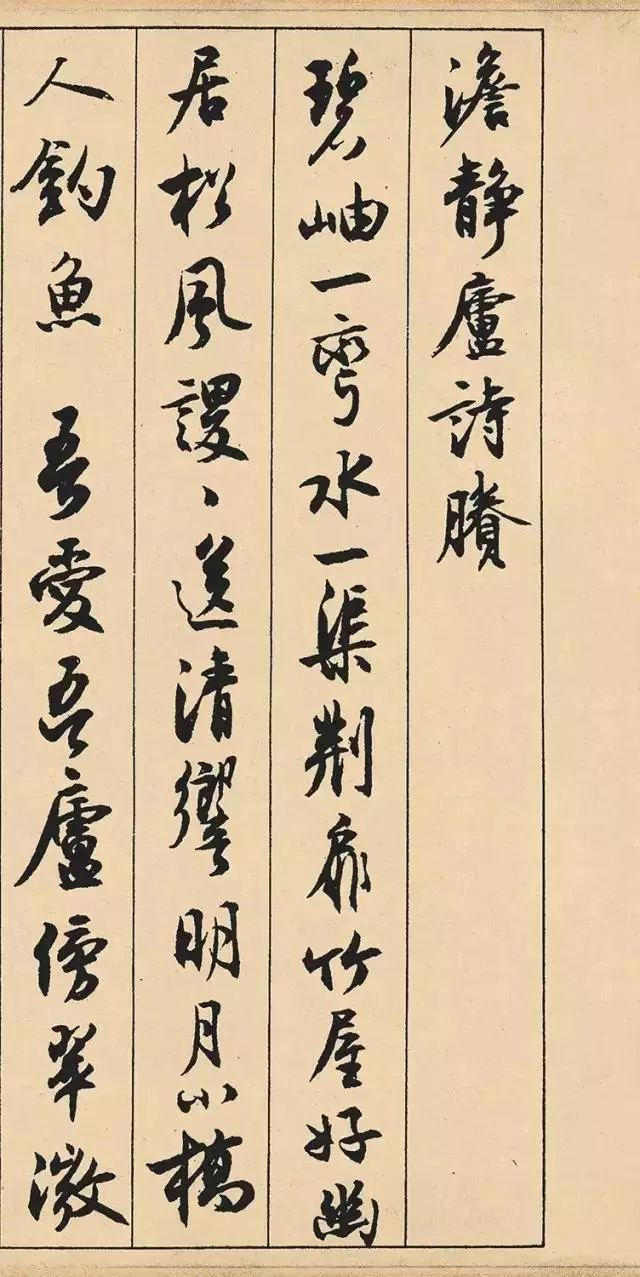 澹靜廬詩賸
碧岫一弯水一渠荆扉竹屋好幽
居松風謖〻送清響明月小橋
人釣魚 吾愛吾廬傍翠微